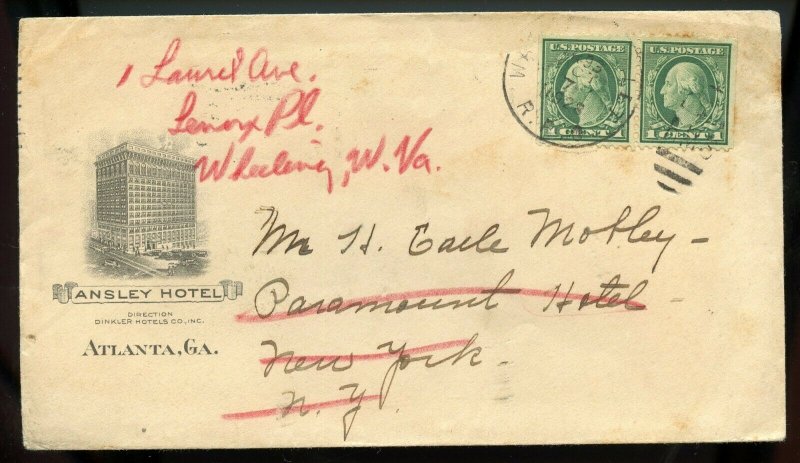 1 Laurel Ave.
Lenox Pl.
Wheeling, W. Va.
U.S. POSTAGE
1 CENT 1
U.S. POSTAGE
1 CENT 1
R.
Mr H. Earle Motley -
Paramount Hotel
New York.
N. Y.
ANSLEY HOTEL
DIRECTION
DINKLER HOTELS CO., INC.
ATLANTA, GA.